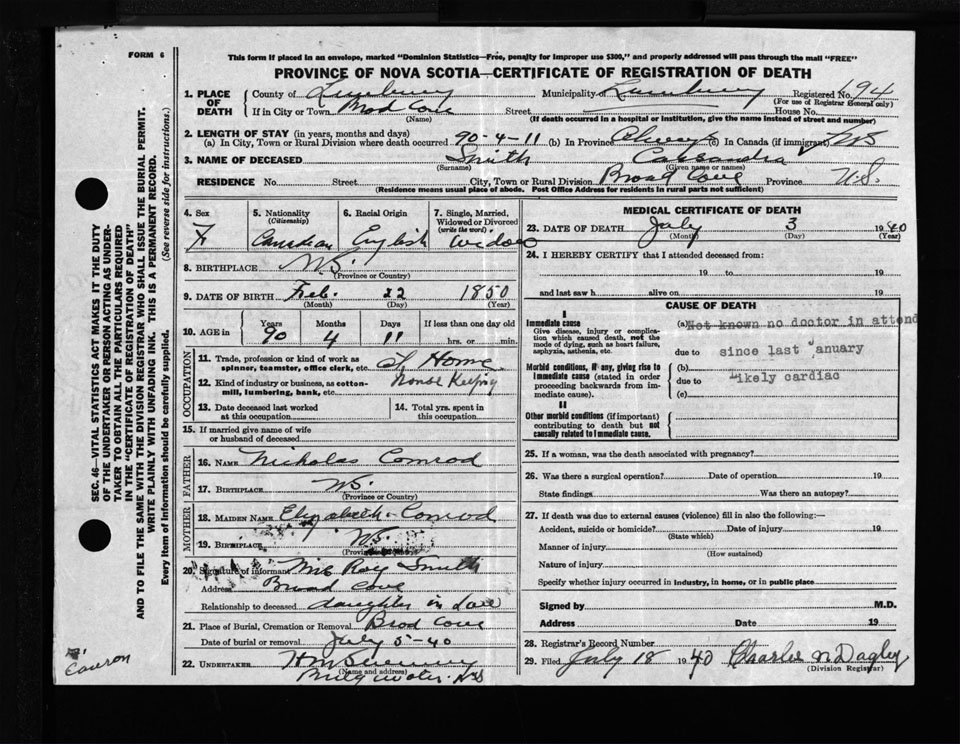 FORM 6
This form if placed in an envelope, marked "Dominion Statistics—Free, penalty for improper use $300," and properly addressed will pass through the mail "FREE"
PROVINCE OF NOVA SCOTIA—CERTIFICATE OF REGISTRATION OF DEATH
SEC. 46—VITAL STATISTICS ACT MAKES IT THE DUTY
OF THE UNDERTAKER OR PERSON ACTING AS UNDER-
TAKER TO OBTAIN ALL THE PARTICULARS REQUIRED
IN THE "CERTIFICATE OF REGISTRATION OF DEATH"
AND TO FILE THE SAME WITH THE DIVISION REGISTRAR WHO SHALL ISSUE THE BURIAL PERMIT.
WRITE PLAINLY WITH UNFADING INK. THIS IS A PERMANENT RECORD.
Every item of information should be carefully supplied. (See reverse side for instructions.)
1. PLACE OF DEATH
County of Lunenburg Municipality Lunenburg Registered No. 94
(For use of Registrar General only)
If in City or Town Brod Cove Street House No.
(Name) (If death occurred in a hospital or institution, give the name instead of street and number)
2. LENGTH OF STAY (in years, months and days)
(a) In City, Town or Rural Division where death occurred 90-4-11 (b) In Province Always (c) In Canada (if immigrant) NS
3. NAME OF DECEASED Smith Cassandra
(Surname) (Given name or names)
RESIDENCE No. Street City, Town or Rural Division Broad Cove Province N.S.
(Residence means usual place of abode. Post Office Address for residents in rural parts not sufficient)
4. Sex F
5. Nationality (Citizenship) Canadian
6. Racial Origin English
7. Single, Married, Widowed or Divorced (write the word) Widow
8. BIRTHPLACE N.S.
(Province or Country)
9. DATE OF BIRTH Feb. 22 1850
(Month) (Day) (Year)
10. AGE in Years 90 Months 4 Days 11 If less than one day old hrs. or min.
OCCUPATION
11. Trade, profession or kind of work as spinner, teamster, office clerk, etc. At Home
12. Kind of industry or business, as cotton-mill, lumbering, bank, etc. House Keeping
13. Date deceased last worked at this occupation
14. Total yrs. spent in this occupation
15. If married give name of wife or husband of deceased
FATHER
16. NAME Nicholas Conrod
17. BIRTHPLACE NS.
(Province or Country)
MOTHER
18. MAIDEN NAME Elizabeth Conrod
19. BIRTHPLACE N.S.
20. Signature of informant Mrs Roy Smith
Address Broad Cove
Relationship to deceased daughter in Law
21. Place of Burial, Cremation or Removal Brod Cove
Date of burial or removal July 5-40
22. UNDERTAKER
(Name and address)
Bridgwater. NS
MEDICAL CERTIFICATE OF DEATH
23. DATE OF DEATH July 3 1940
(Month) (Day) (Year)
24. I HEREBY CERTIFY that I attended deceased from:
19 to 19
and last saw h alive on 19
CAUSE OF DEATH
I
Immediate cause
Give disease, injury or complication which caused death, not the mode of dying, such as heart failure, asphyxia, asthenia, etc.
(a) Not known no doctor in attend
due to since last anuary
Morbid conditions, if any, giving rise to immediate cause (stated in order proceeding backwards from immediate cause).
(b)
due to Likely cardiac
(c)
II
Other morbid conditions (if important) contributing to death but not causally related to immediate cause.
25. If a woman, was the death associated with pregnancy?
26. Was there a surgical operation? Date of operation 19
State findings Was there an autopsy?
27. If death was due to external causes (violence) fill in also the following:—
Accident, suicide or homicide? Date of injury 19
(State which)
Manner of injury
(How sustained)
Nature of injury
Specify whether injury occurred in industry, in home, or in public place
Signed by M.D.
Address Date 19
28. Registrar's Record Number
29. Filed July 18 1940 Charles N Dagley
(Division Registrar)